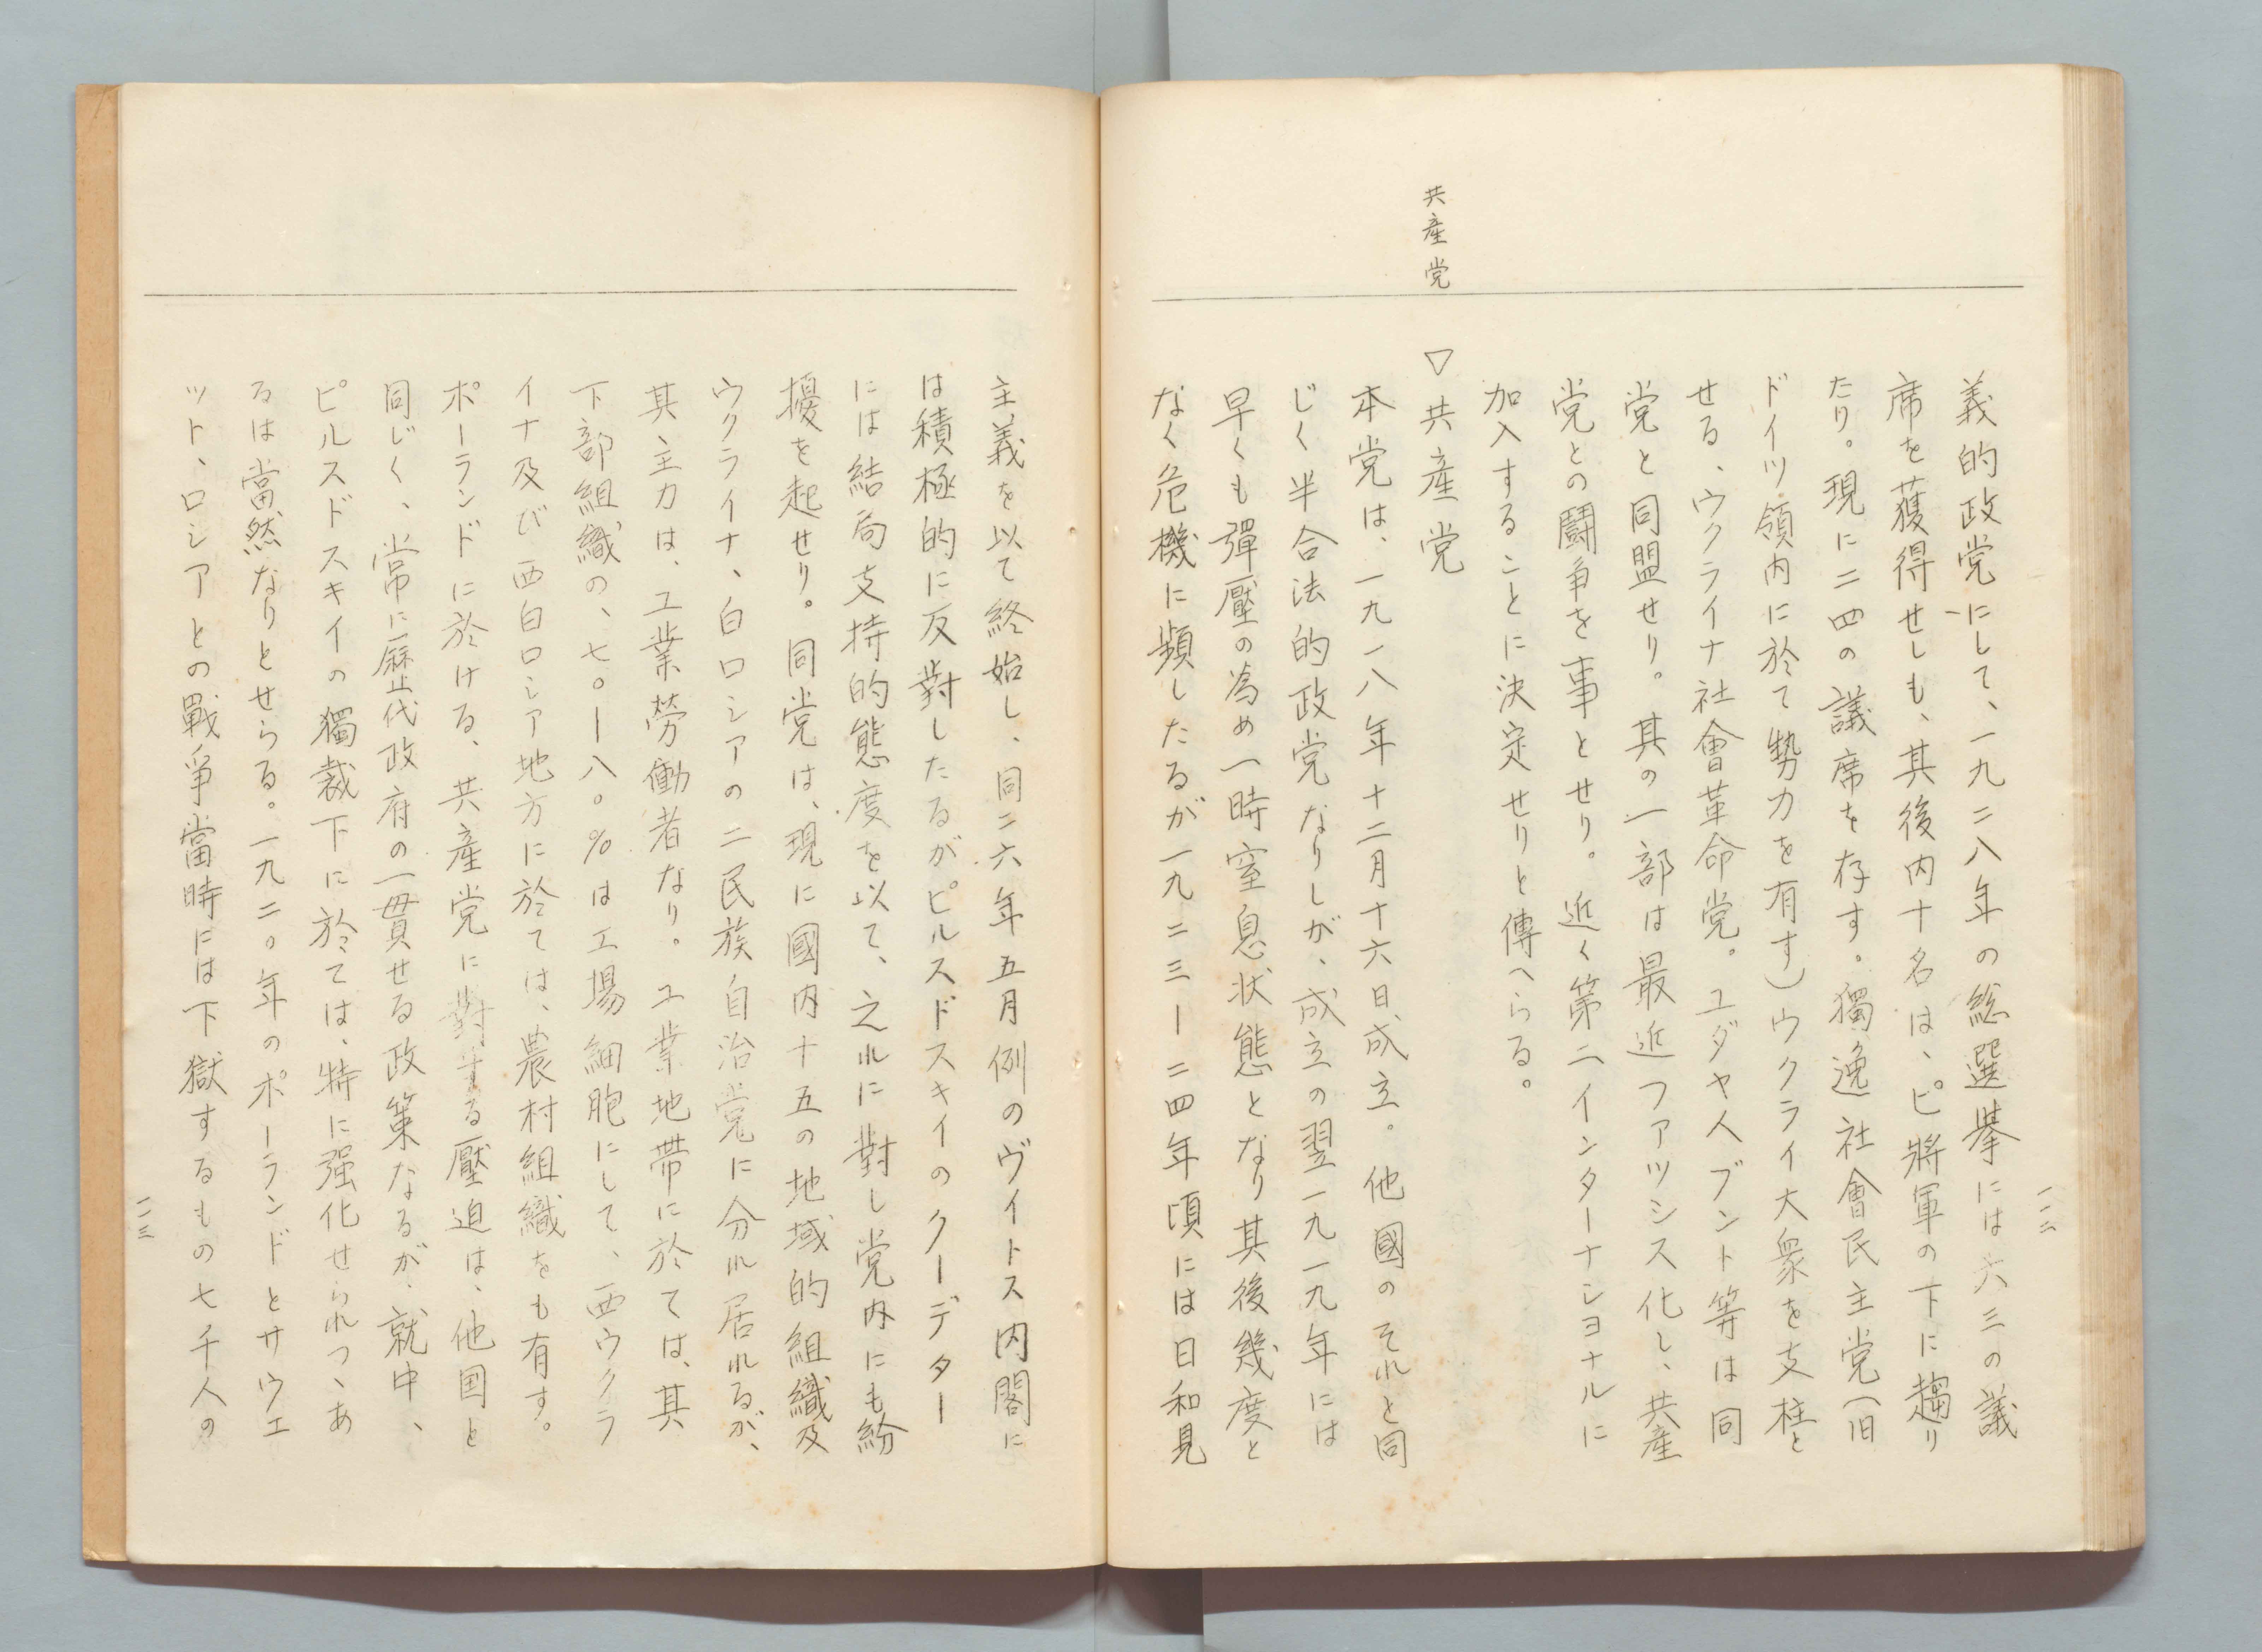 一一二
共産党
義的政党にして、一九二八年の総選挙には六三の議
席を獲得せしも、其後内十名は、ピ將軍の下に趨り
たり。現に二四の議席を存す。獨逸社會民主党(旧
ドイツ領内に於て勢力を有す)ウクライ大衆を支柱と
せる、ウクライナ社會革命党。ユダヤ人ブント等は同
党と同盟せり。其の一部は最近ファツシス化し、共産
党との闘争を事とせり。近く第二インターナシヨナルに
加入することに決定せりと傳へらる。
▽共産党
本党は、一九一八年十二月十六日、成立。他國のそれと同
じく半合法的政党なりしが、成立の翌一九一九年には
早くも彈壓の為め一時窒息状態となり其後幾度と
なく危機に頻したるが一九二三ー二四年頃には日和見
主義を以て終始し、同二六年五月例のヴイトス内閣に
は積極的に反對したるがピルスドスキイのクーデター
には結局支持的態度を以て、之れに對し党内にも紛
擾を起せり。同党は、現に國内十五の地域的組織及
ウクライナ、白ロシアの二民族自治党に分れ居れるが、
其主力は、工業勞働者なり。工業地帯に於ては、其
下部組織の、七〇ー八〇%は工場細胞にして、西ウクラ
イナ及び西白ロシア地方に於ては、農村組織をも有す。
ポーランドに於ける、共産党に對する壓迫は、他国と
同じく、常に歴代政府の一貫せる政策なるが、就中、
ピルスドスキイの獨裁下に於ては、特に强化せられつゝあ
るは當然なりとせらる。一九二〇年のポーランドとサウエ
ツト、ロシアとの戰爭當時には下獄するもの七千人の
一一三